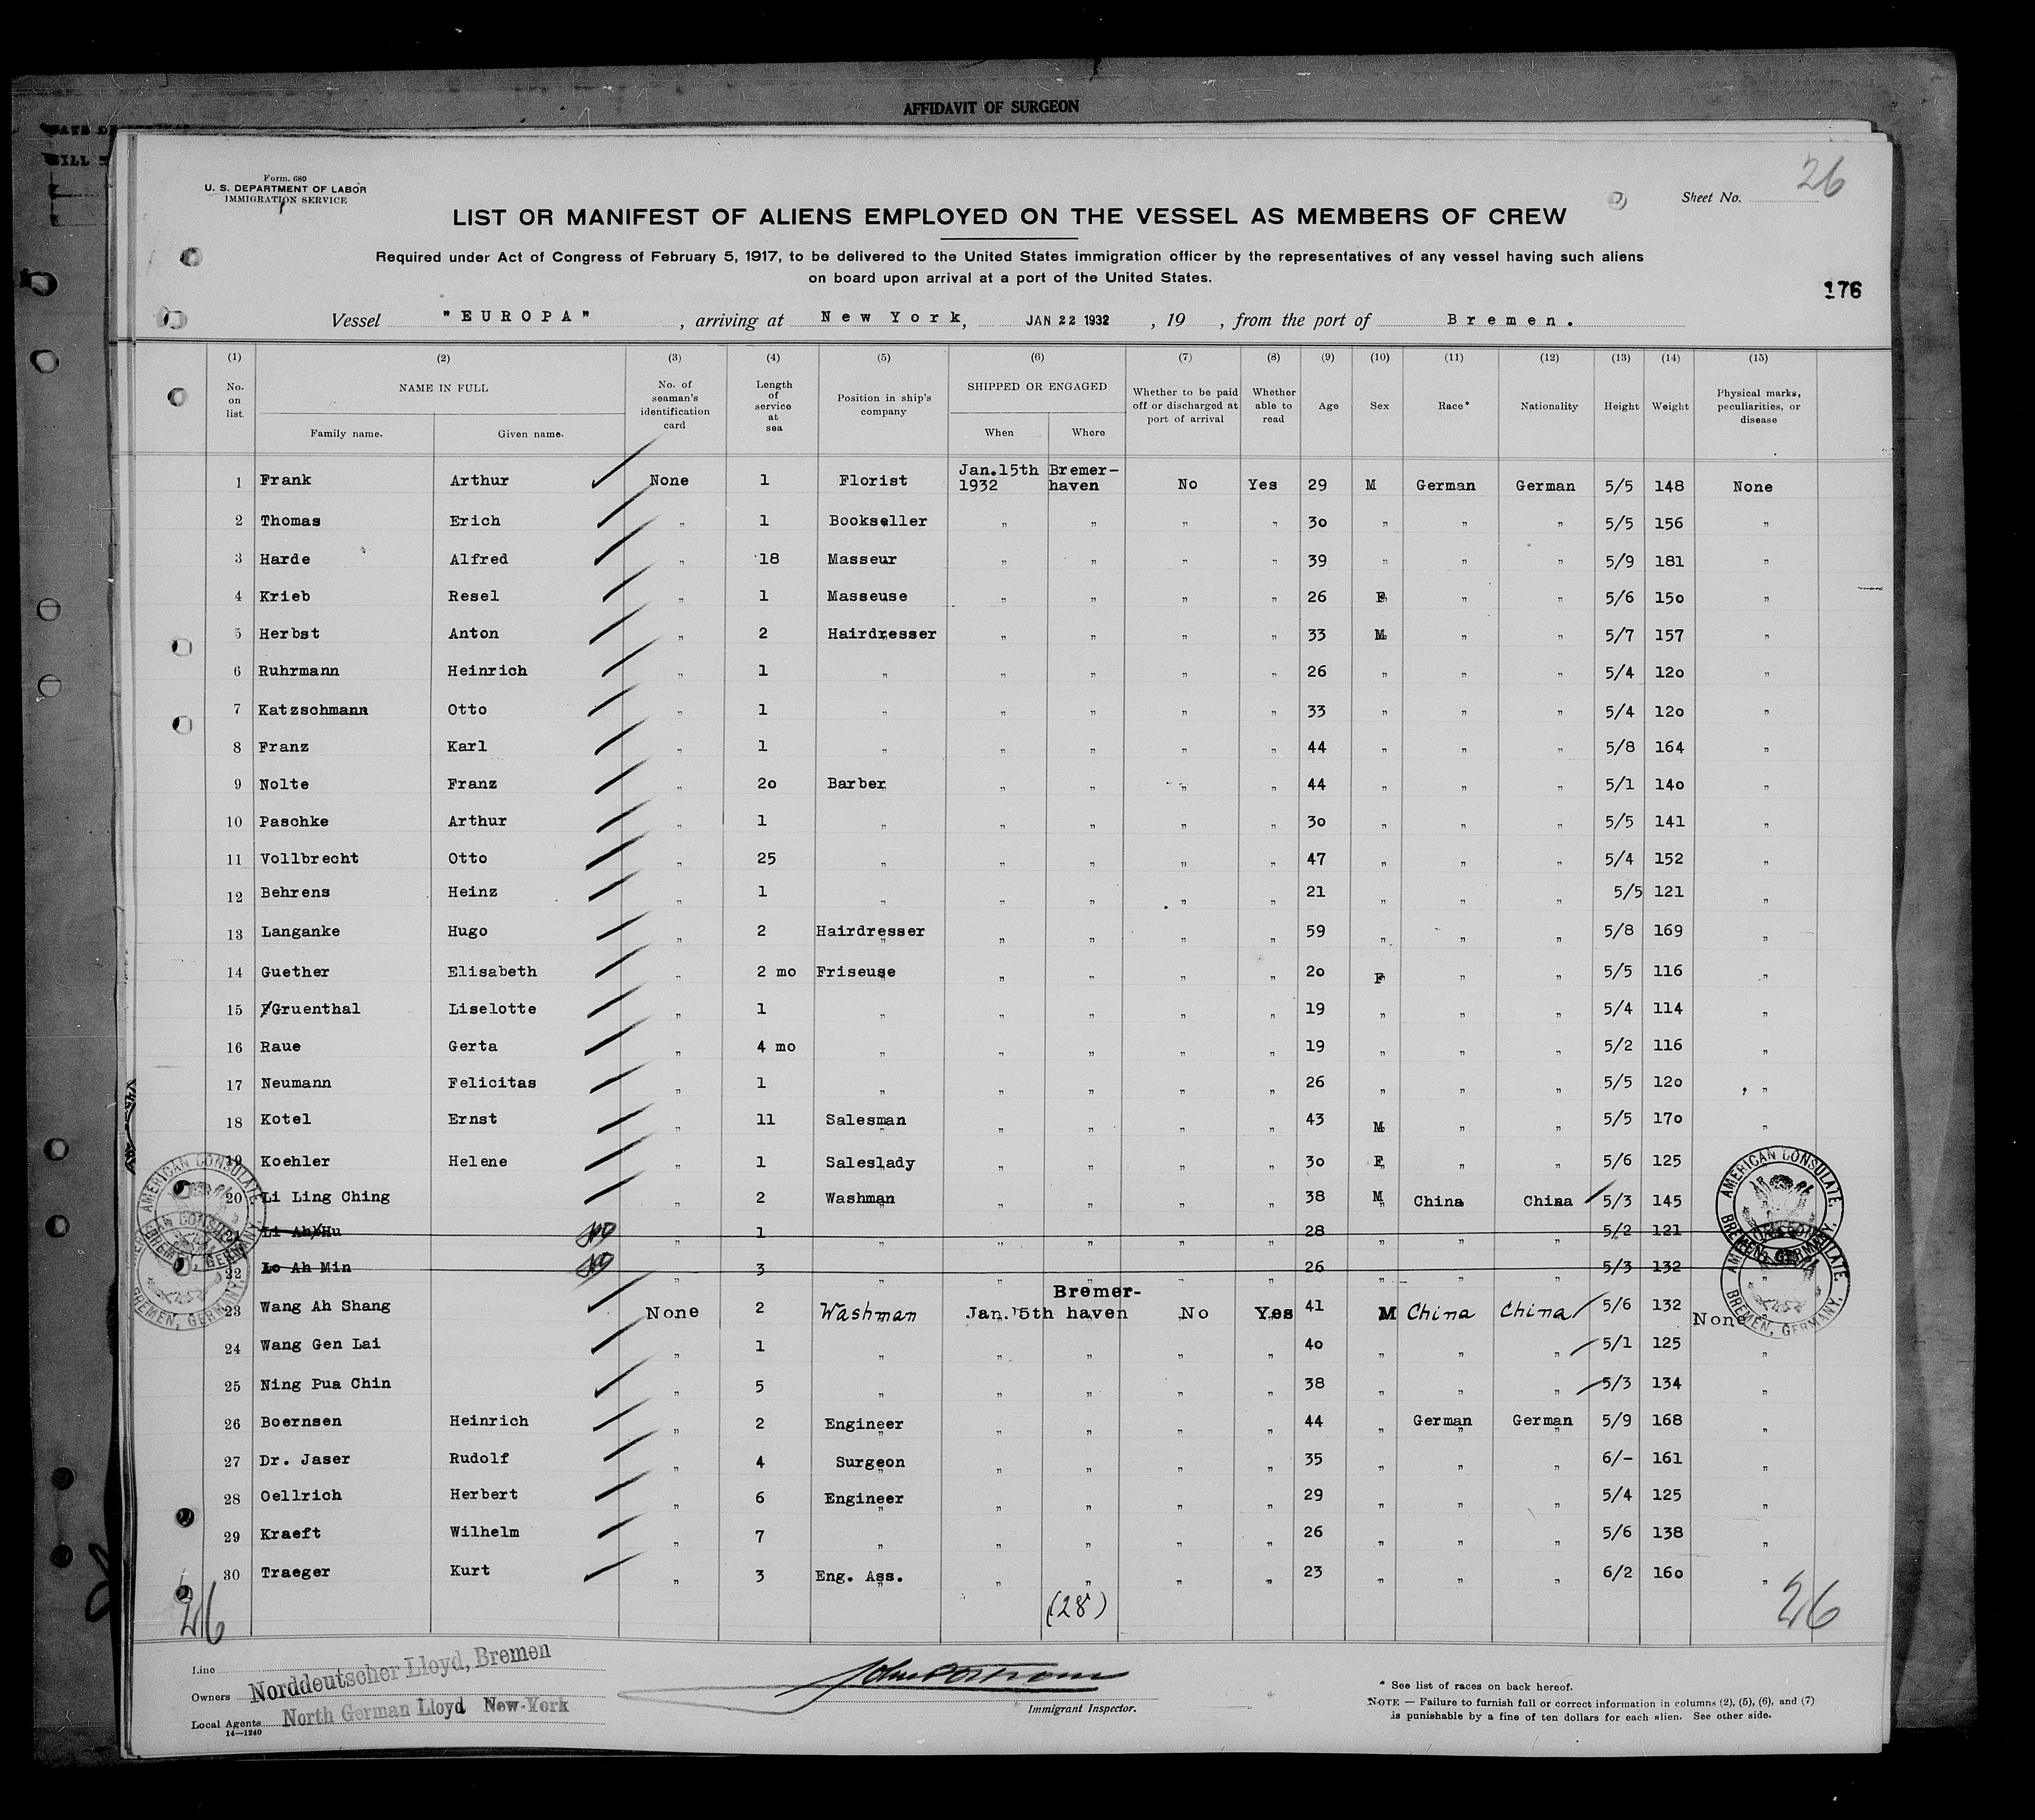 AFFIDAVIT OF SURGEON
Form. 680
U. S. DEPARTMENT OF LABOR
IMMIGRATION SERVICE
26
Sheet No.
LIST OR MANIFEST OF ALIENS EMPLOYED ON THE VESSEL AS MEMBERS OF CREW
Required under Act of Congress of February 5, 1917, to be delivered to the United States immigration officer by the representatives of any vessel having such aliens
on board upon arrival at a port of the United States.
176
Vessel "EUROPA" , arriving at New York, JAN 22 1932 , 19 , from the port of Bremen.
(1) (2) (3) (4) (5) (6) (7) (8) (9) (10) (11) (12) (13) (14) (15)
No. on list. NAME IN FULL Family name. Given name. No. of seaman's identification card Length of service at sea Position in ship's company SHIPPED OR ENGAGED When Where Whether to be paid off or discharged at port of arrival Whether able to read Age Sex Race* Nationality Height Weight Physical marks, peculiarities, or disease
1 Frank Arthur None 1 Florist Jan.15th 1932 Bremer-haven No Yes 29 M German German 5/5 148 None
2 Thomas Erich " 1 Bookseller " " " " 30 " " " 5/5 156 "
3 Harde Alfred " 18 Masseur " " " " 39 " " " 5/9 181 "
4 Krieb Resel " 1 Masseuse " " " " 26 F " " 5/6 150 "
5 Herbst Anton " 2 Hairdresser " " " " 33 M " " 5/7 157 "
6 Ruhrmann Heinrich " 1 " " " " " 26 " " " 5/4 120 "
7 Katzschmann Otto " 1 " " " " " 33 " " " 5/4 120 "
8 Franz Karl " 1 " " " " " 44 " " " 5/8 164 "
9 Nolte Franz " 20 Barber " " " " 44 " " " 5/1 140 "
10 Paschke Arthur " 1 " " " " " 30 " " " 5/5 141 "
11 Vollbrecht Otto " 25 " " " " " 47 " " " 5/4 152 "
12 Behrens Heinz " 1 " " " " " 21 " " " 5/5 121 "
13 Langanke Hugo " 2 Hairdresser " " " " 59 " " " 5/8 169 "
14 Guether Elisabeth " 2 mo Friseuse " " " " 20 F " " 5/5 116 "
15 Gruenthal Liselotte " 1 " " " " " 19 " " " 5/4 114 "
16 Raue Gerta " 4 mo " " " " " 19 " " " 5/2 116 "
17 Neumann Felicitas " 1 " " " " " 26 " " " 5/5 120 "
18 Kotel Ernst " 11 Salesman " " " " 43 M " " 5/5 170 "
19 Koehler Helene " 1 Saleslady " " " " 30 F " " 5/6 125 "
20 Li Ling Ching " 2 Washman " " " " 38 M China China 5/3 145
21 Li Ah Hu " 1 " " " " " 28 " " " 5/2 121
22 Lo Ah Min " 3 " " " " " 26 " " " 5/3 132 "
23 Wang Ah Shang None 2 Washman Jan.15th Bremer-haven No Yes 41 M China China 5/6 132 None
24 Wang Gen Lai " 1 " " " " " 40 " " " 5/1 125 "
25 Ning Pua Chin " 5 " " " " " 38 " " " 5/3 134 "
26 Boernsen Heinrich " 2 Engineer " " " " 44 " German German 5/9 168 "
27 Dr. Jaser Rudolf " 4 Surgeon " " " " 35 " " " 6/- 161 "
28 Oellrich Herbert " 6 Engineer " " " " 29 " " " 5/4 125 "
29 Kraeft Wilhelm " 7 " " " " " 26 " " " 5/6 138 "
30 Traeger Kurt " 3 Eng. Ass. " " " " 23 " " " 6/2 160 "
AMERICAN CONSULATE. BREMEN, GERMANY.
AMERICAN CONSULATE. BREMEN, GERMANY.
AMERICAN CONSULATE. BREMEN, GERMANY.
AMERICAN CONSULATE. BREMEN, GERMANY.
(28)
26
26
Line
Owners Norddeutscher Lloyd, Bremen
Local Agents North German Lloyd New-York
14—1240
Immigrant Inspector.
* See list of races on back hereof.
NOTE — Failure to furnish full or correct information in columns (2), (5), (6), and (7)
is punishable by a fine of ten dollars for each alien. See other side.